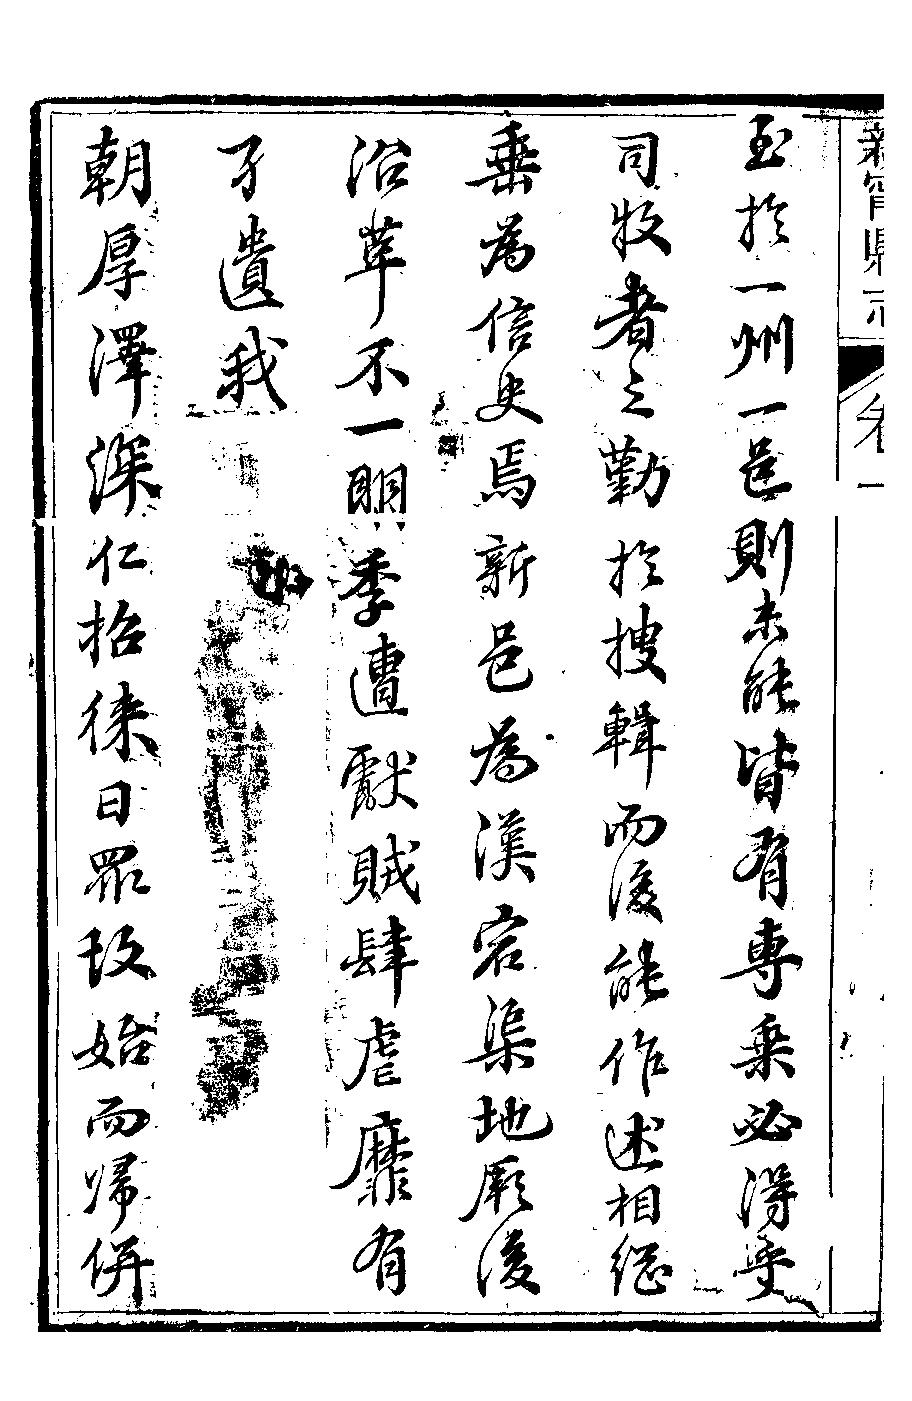 新甯縣志 卷一
至於一州一邑則未能皆有專乘必得
司牧者之勤於搜輯而後能作述相繼
垂為信史焉新邑為漢宕渠地厥後
沿革不一明季遭獻賊肆虐靡有
孑遺我
朝厚澤深仁招徠日眾故始而歸併